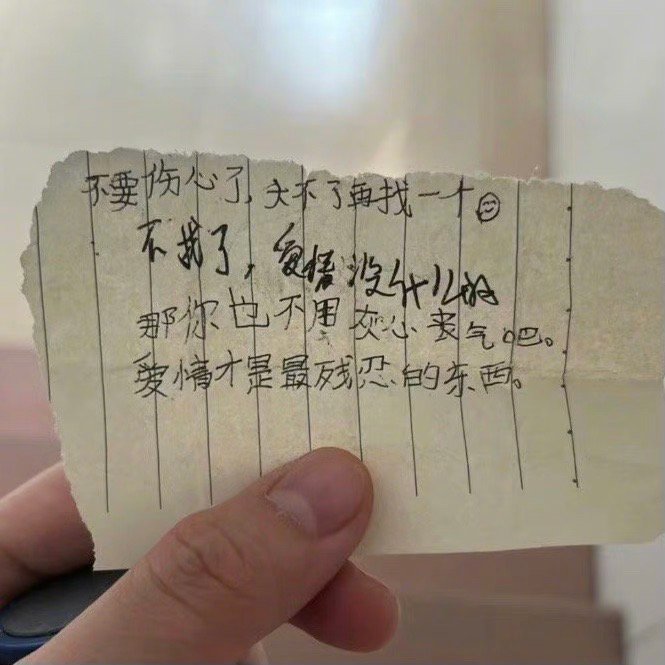 不要伤心了,大不了再找一个
不找了,爱情没什么的
那你也不用灰心丧气吧。
爱情才是最残忍的东西。